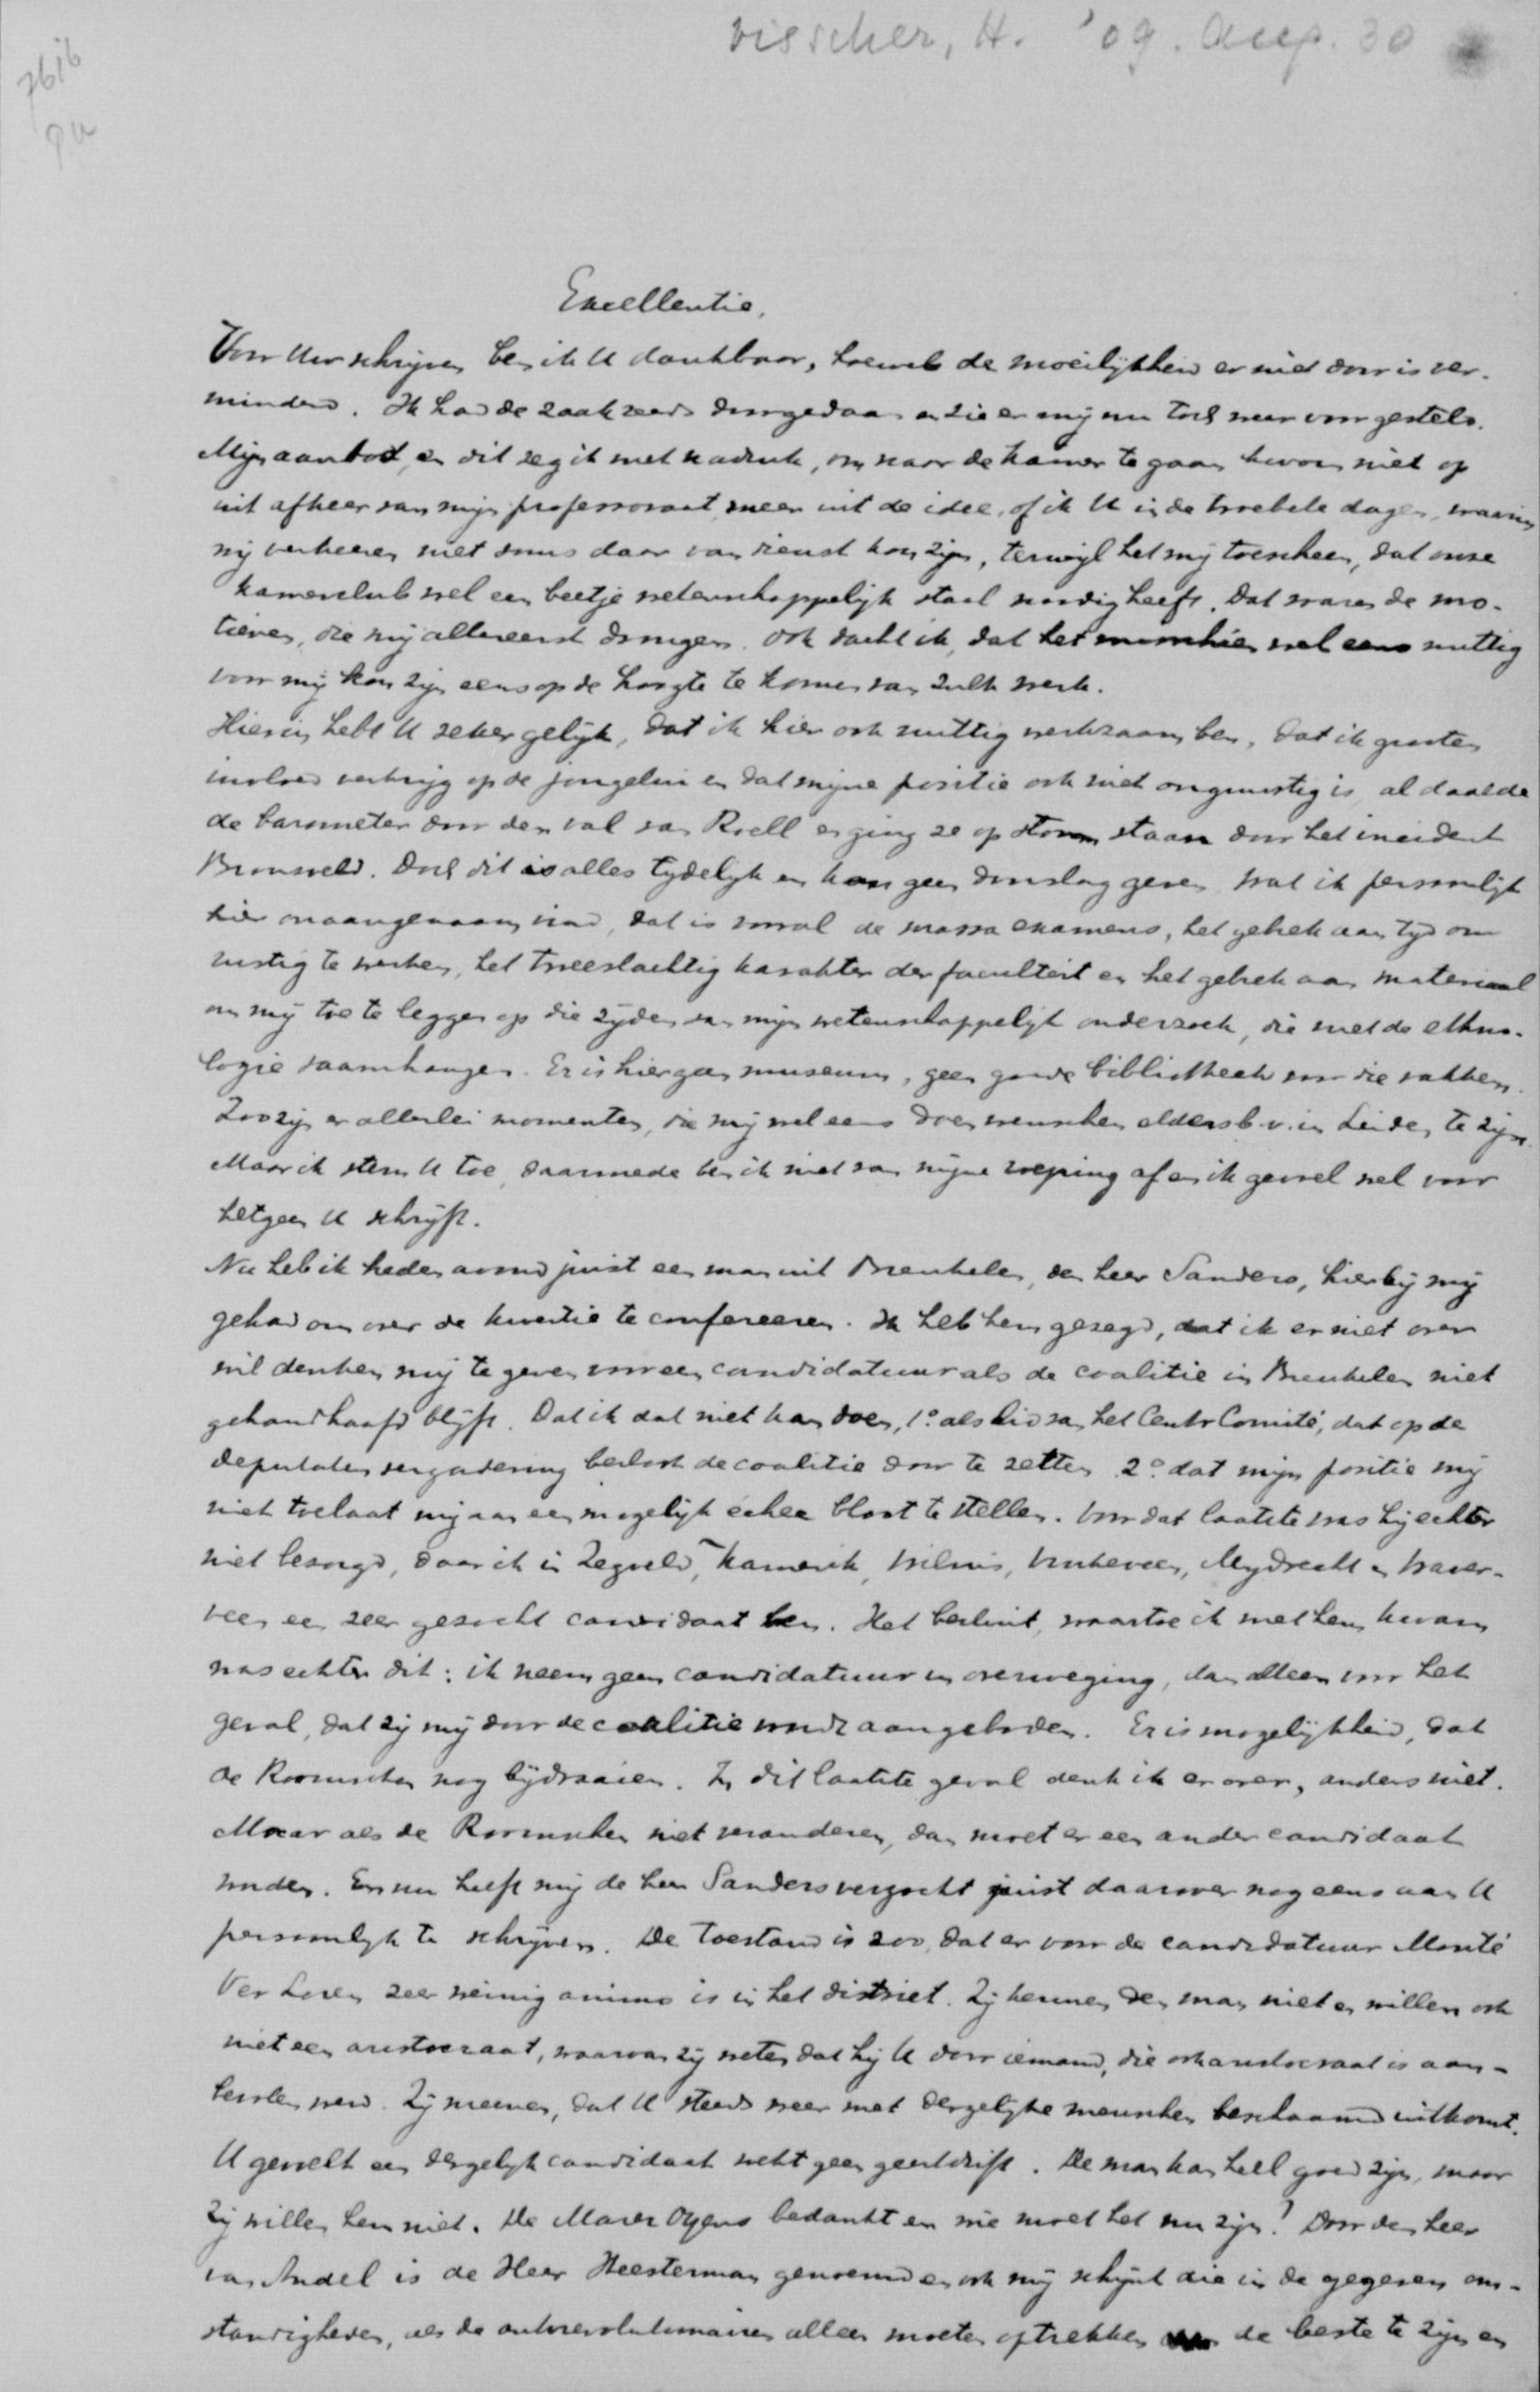 Visscher, H. '09. Aug. 30
7616
Excellentie,
Voor Uw schrijven ben ik U dankbaar, hoewel de moeilijkheid er niet door is ver-
minderd. Ik had de zaak reeds doorgedaan en zie er mij nu toch weer voor gesteld.
Mijn aanbod, en dit zeg ik met nadruk, om naar de Kamer te gaan kwam niet op
uit afkeer van mijn professoraat, meer uit de idee, of ik U in de troebele dagen, waarin
wij verkeeren niet soms daar van dienst kon zijn, terwijl het mij toescheen, dat onze
kamerclub wel een beetje wetenschappelijk staal noodig heeft. Dat waren de mo-
tieven, die mij allereerst drongen. Ook dacht ik, dat het misschien wel eens nuttig
voor mij kon zijn eens op de hoogte te komen van zulk werk.
Hierin hebt U zeker gelijk, dat ik hier ook nuttig werkzaam ben, dat ik grooten
invloed verkrijg op de jongelui en dat mijne positie ook niet ongunstig is, al daalde
de barometer door den val van Roëll en ging ze op storm staan door het incident
Bronsveld. Doch dit is alles tijdelijk en kan geen doorslag geven. Wat ik persoonlijk
hier onaangenaam vind, dat is vooral de massa examens, het gebrek aan tijd om
rustig te werken, het tweeslachtig karakter der faculteit en het gebrek aan materiaal
om mij toe te leggen op die zijden van mijn wetenschappelijk onderzoek, die met de ethno-
logie saamhangen. Er is hier geen museum, geen goede bibliotheek voor die vakken.
Zoo zijn er allerlei momenten, die mij wel eens doen wenschen elders b.v. in Leiden te zijn.
Maar ik stem U toe, daarmede ben ik niet van mijne roeping af en ik gevoel wel voor
hetgeen U schrijft.
Nu heb ik heden avond juist een man uit Breukelen, den heer Sanders, hier bij mij
gehad om over de kwestie te confereeren. Ik heb hem gezegd, dat ik er niet over
wil denken mij te geven voor een candidatuur als de coalitie in Breukelen niet
gehandhaafd blijft. Dat ik dat niet kan doen, 1o. als lid van het Centr Comité, dat op de
deputaten vergadering besloot de coalitie door te zetten 2o. dat mijn positie mij
niet toelaat mij aan een mogelijk échec bloot te stellen. Voor dat laatste was hij echter
niet bezorgd, daar ik in Zegveld, Kamerik, Wilnis, Vinkeveen, Mijdrecht en Waver-
veen een zeer gezocht candidaat ben. Het besluit, waartoe ik met hem kwam
was echter dit: ik neem geen candidatuur in overweging, dan alleen voor het
geval, dat zij mij door de coalitie wordt aangeboden. Er is mogelijkheid, dat
de Roomschen nog bijdraaien. In dit laatste geval denk ik er over, anders niet.
Maar als de Roomschen niet veranderen, dan moet er een ander candidaat
worden. En nu heeft mij de heer Sanders verzocht juist daarover nog eens aan U
persoonlijk te schrijven. De toestand is zoo, dat er voor de candidatuur Monté
Ver Loren zeer weinig animo is in het district. Zij kennen den man niet en willen ook
niet een aristocraat, waarvan zij weten dat hij U door iemand, die ook aristocraat is aan-
bevolen werd. Zij meenen, dat U steeds weer met dergelijke menschen beschaamd uitkomt.
U gevoelt een dergelijk candidaat wekt geen geestdrift. De man kan heel goed zijn, maar
zij willen hem niet. De Marez Oyens bedankt en wie moet het nu zijn? Door den heer
van Andel is de Heer Heesterman genoemd en ook mij schijnt die in de gegeven om-
standigheden, als de antirevolutionairen alleen moeten optrekken de beste te zijn en